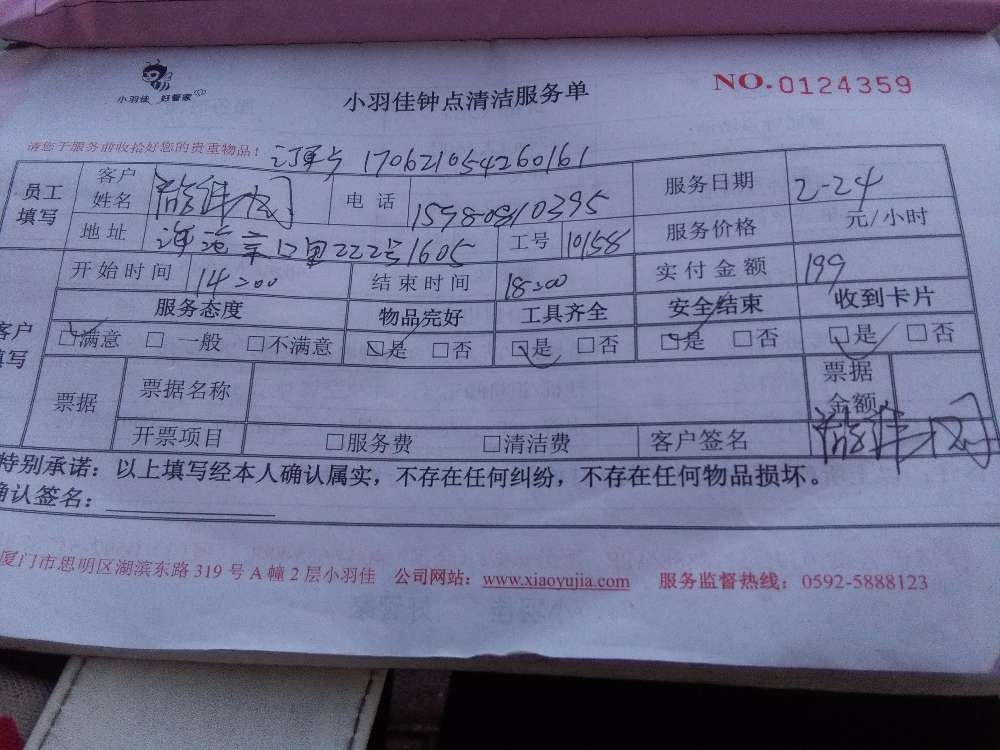 小羽佳 好管家
小羽佳钟点清洁服务单
NO.0124359
请您于服务前收拾好您的贵重物品！ 订单号 170621054260161
员工填写 客户姓名 电话 15980810395 服务日期 2-24
地址 222号1605 工号 10158 服务价格 元/小时
开始时间 14:00 结束时间 18:00 实付金额 199
客户填写 服务态度 物品完好 工具齐全 安全结束 收到卡片
□满意 □一般 □不满意 □是 □否 □是 □否 □是 □否 □是 □否
票据 票据名称 票据金额
开票项目 □服务费 □清洁费 客户签名
特别承诺：以上填写经本人确认属实，不存在任何纠纷，不存在任何物品损坏。
确认签名：
厦门市思明区湖滨东路 319 号 A 幢 2 层小羽佳 公司网站：www.xiaoyujia.com 服务监督热线：0592-5888123